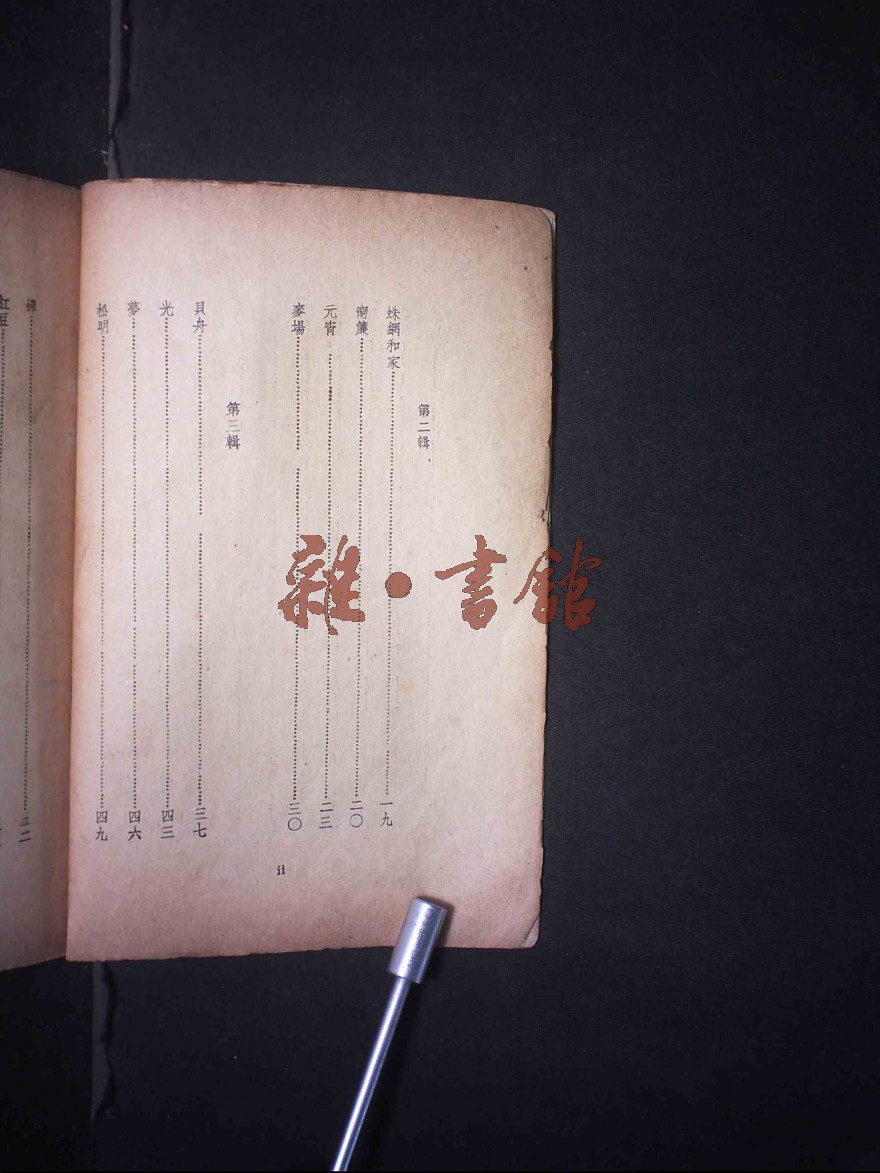 第二輯
蛛網和家……一九
窗簾……二〇
元宵……二三
麥場……三〇
第三輯
貝舟……三七
光……四三
夢……四六
松明……四九
ii
紅豆
雜·書館